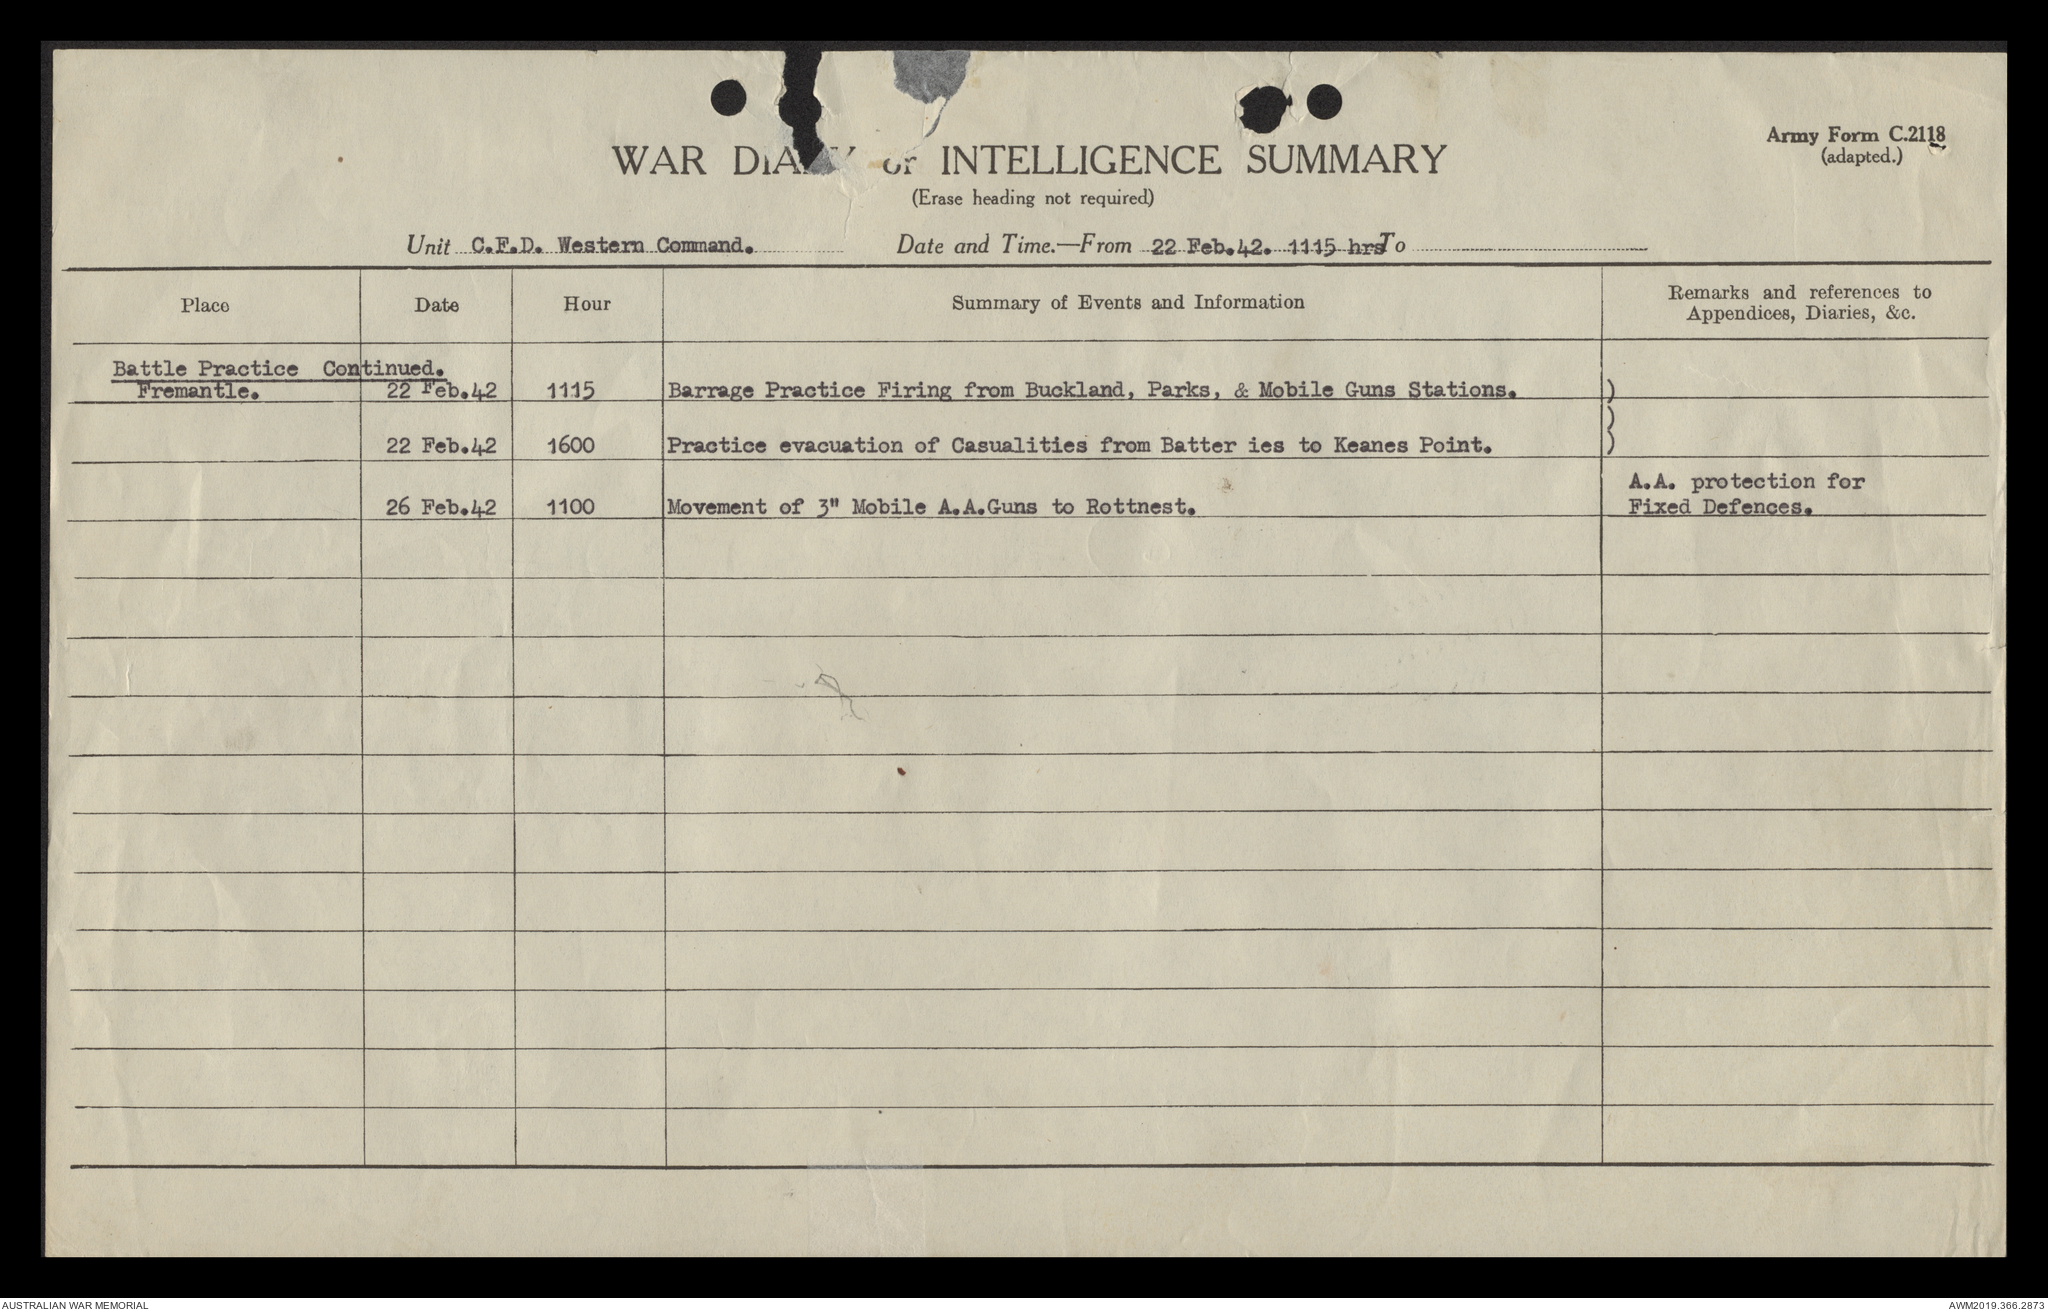 Army Form C.2118
(adapted.)
WAR DIARY or INTELLIGENCE SUMMARY
(Erase heading not required)
Unit C.F.D. Western Command. Date and Time.—From 22 Feb.42. 1115 hrs To
Place Date Hour Summary of Events and Information Remarks and references to
Appendices, Diaries, &c.
Battle Practice Continued.
Fremantle. 22 Feb.42 1115 Barrage Practice Firing from Buckland, Parks, & Mobile Guns Stations. )
)
22 Feb.42 1600 Practice evacuation of Casualities from Batter ies to Keanes Point. )
A.A. protection for
26 Feb.42 1100 Movement of 3" Mobile A.A.Guns to Rottnest. Fixed Defences.
AUSTRALIAN WAR MEMORIAL AWM2019.366.2873